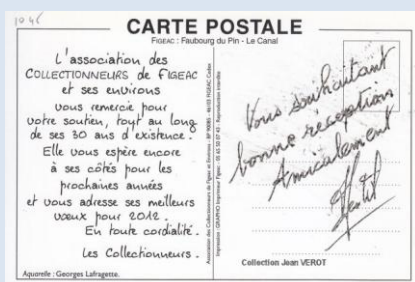 10 45
CARTE POSTALE
FIGEAC : Faubourg du Pin - Le Canal
L'association des
COLLECTIONNEURS de FIGEAC
et ses environs
vous remercie pour
votre soutien, tout au long
de ses 30 ans d'existence.
Elle vous espère encore
à ses côtés pour les
prochaines années
et vous adresse ses meilleurs
vœux pour 2012.
En toute cordialité.
Les Collectionneurs.
Aquarelle : Georges Lafragette.
Association des Collectionneurs de Figeac et Environs - BP 90085 - 46103 FIGEAC Cedex
Impression : GRAPHO Imprimeur Figeac - 05 65 50 07 43 - Reproduction interdite
Vous souhaitant
bonne réception
Amicalement
Collection Jean VEROT